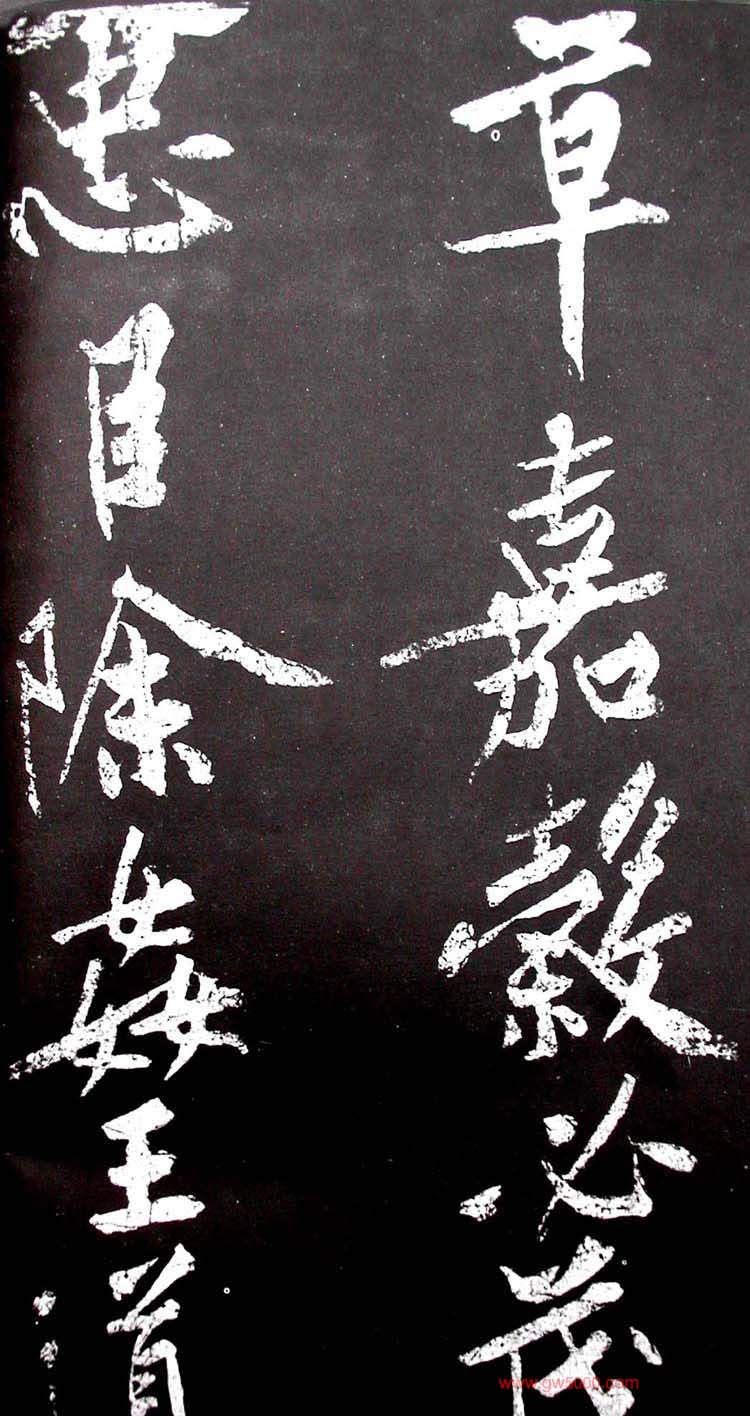 草嘉穀必茂
忠臣除姦王道
www.gw5000.com